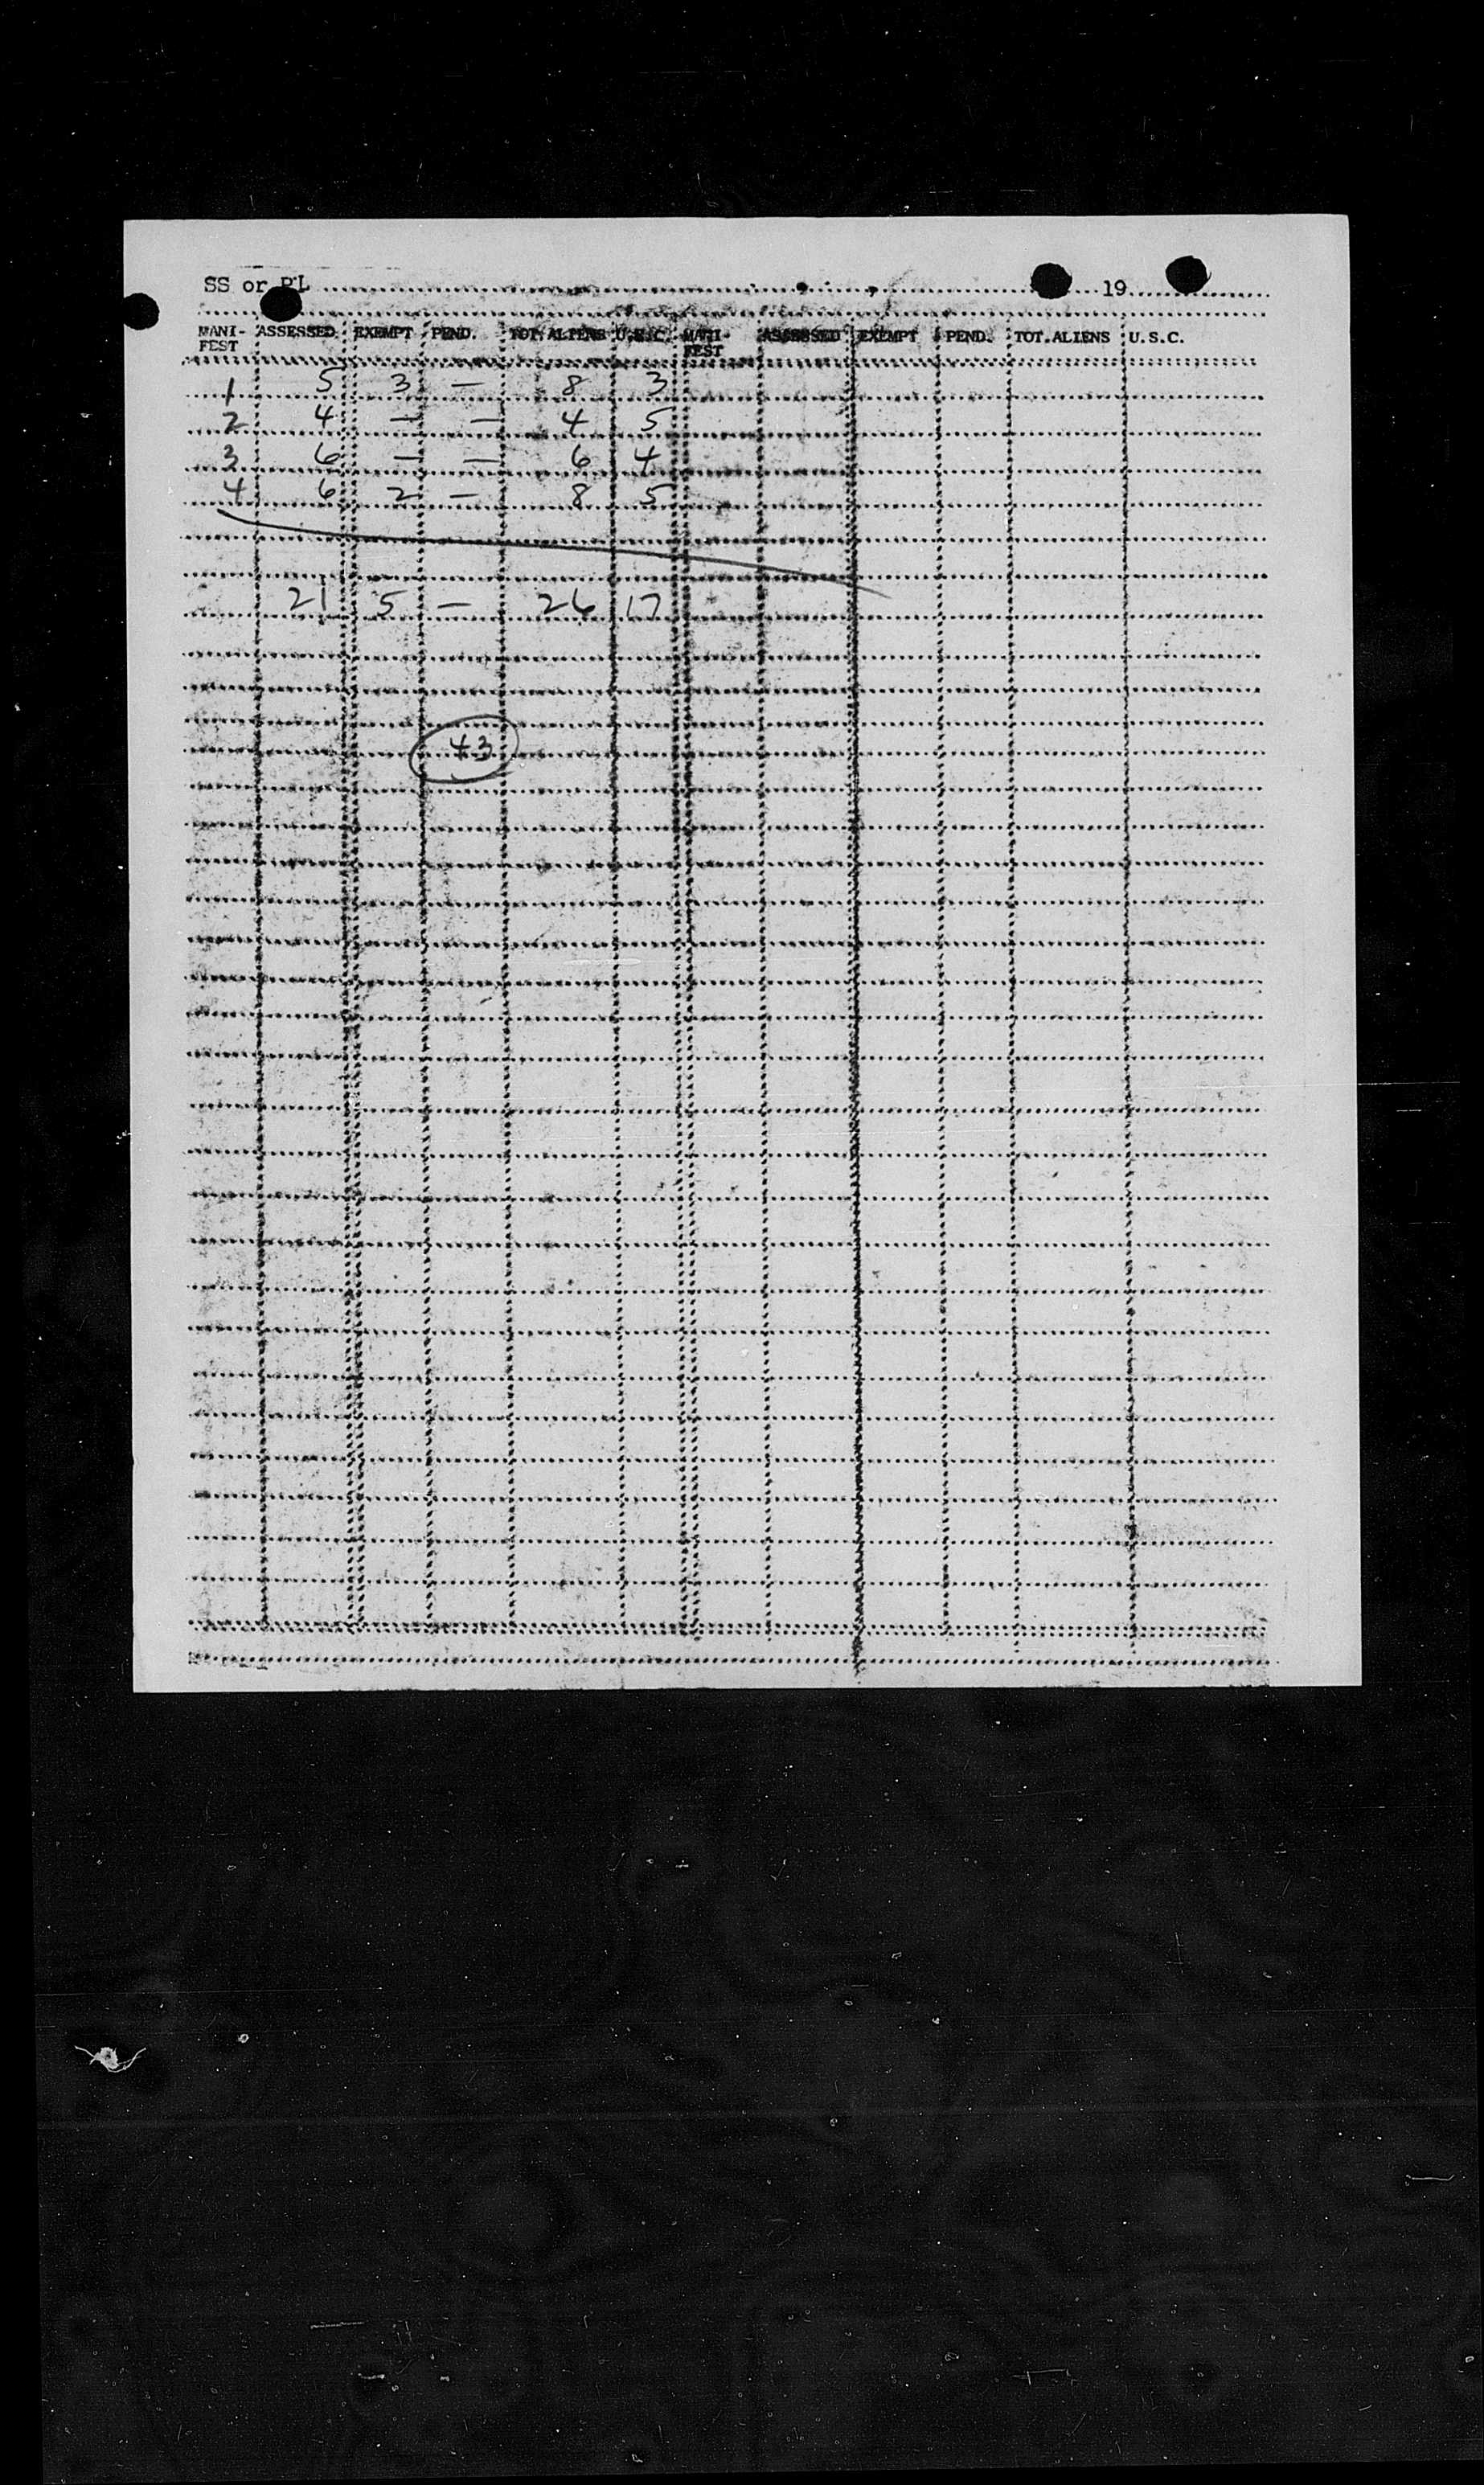 SS or PL 19
MANI-FEST ASSESSED EXEMPT PEND. TOT. ALIENS U.S.C. MANI-FEST ASSESSED EXEMPT PEND. TOT. ALIENS U.S.C.
1 5 3 — 8 3
2 4 — — 4 5
3 6 — — 6 4
4 6 2 — 8 5
21 5 — 26 17
43